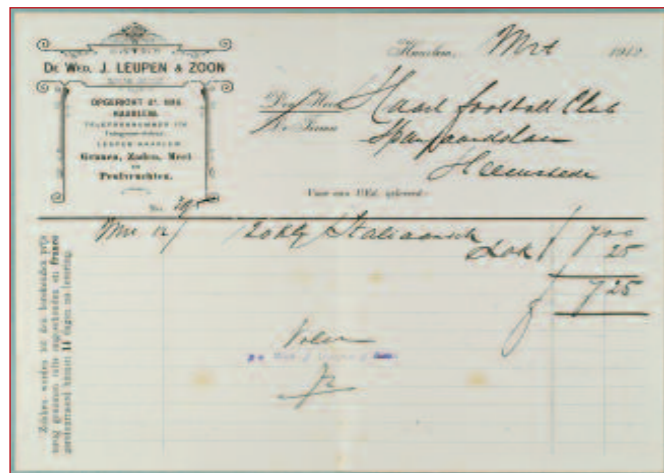 DE WED. J. LEUPEN & ZOON
OPGERICHT
HAARLEM.
TELEFOONNUMMER
LEUPEN HAARLEM
Granen, Zaden, Meel
en
Peulvruchten.
No. 395
Haarlem, Mrt 1912
Den Heer Haarl football Club
De Firma Spanjaardslaan
Heemstede
Voor aan UEd. geleverd:
Mrt 12 20 kilo Italiaansch 7 00
Zak 25
f 7 25
Voldn
Wed. J. Leupen & Zoon
Zakken worden tot den berekenden prijs
terug genomen mits ongeschonden en franco
geretourneerd binnen 14 dagen na levering.